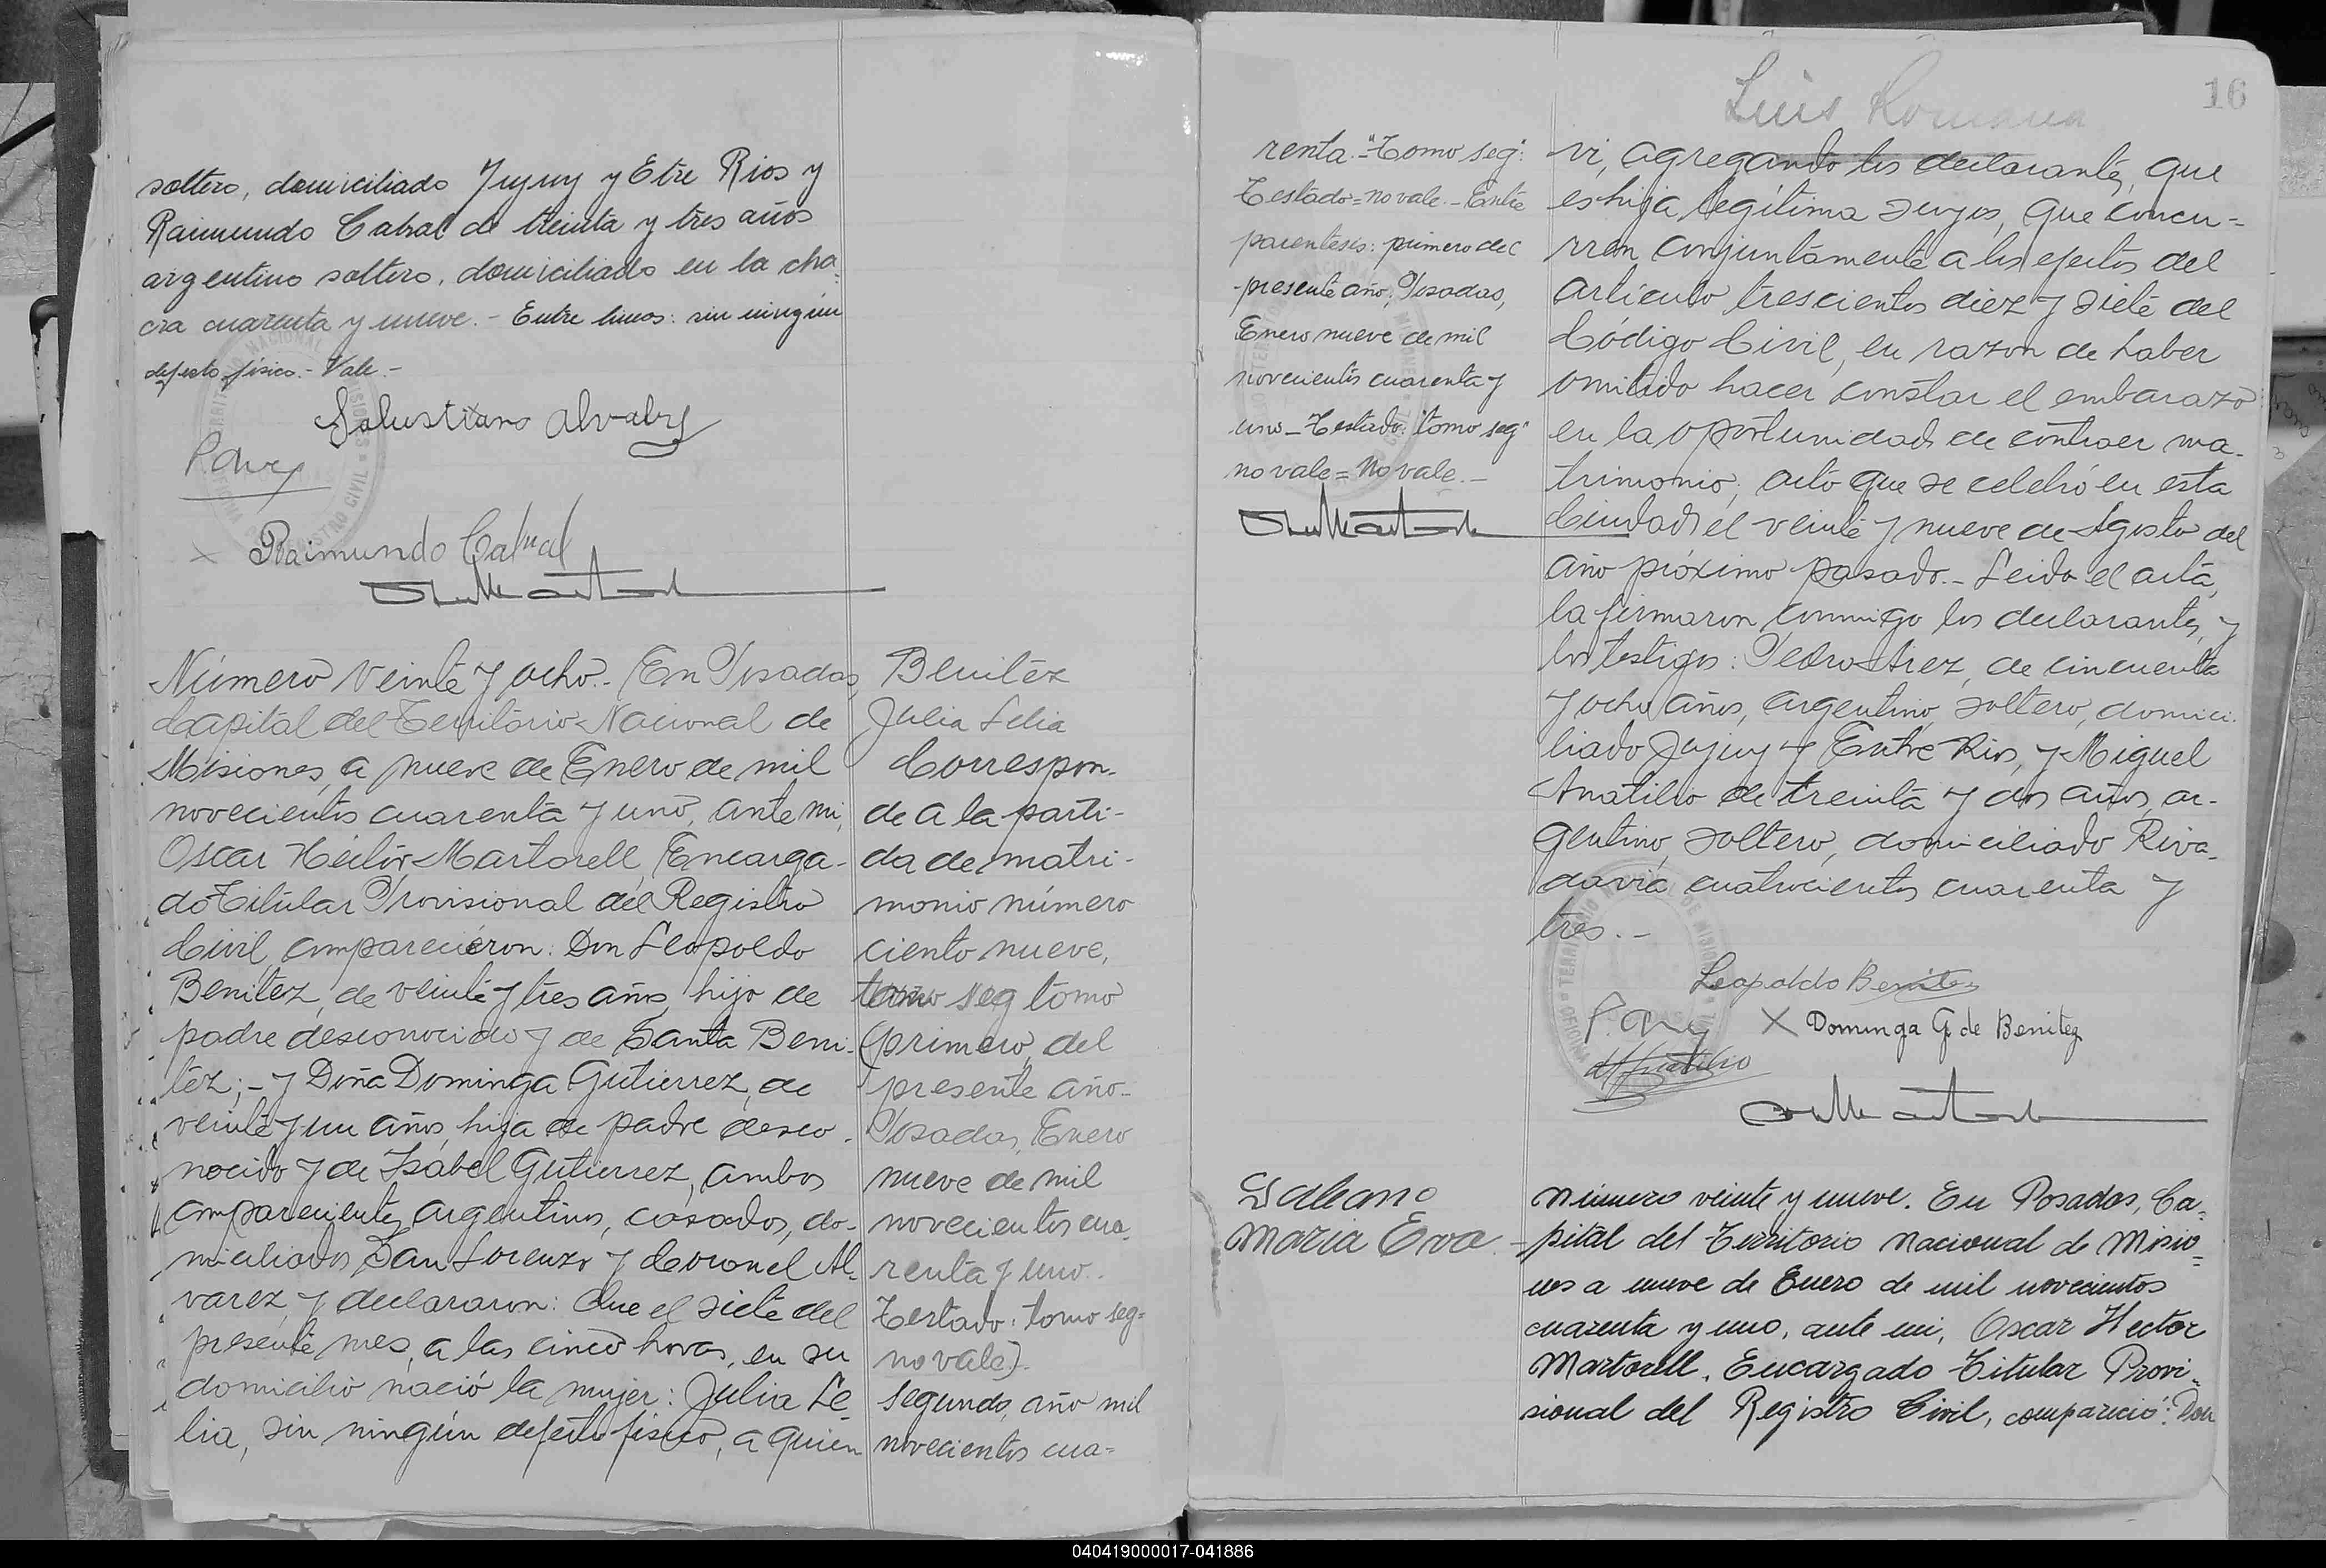 soltero, domiciliado Jujuy y Etre Rios y
Raimundo Cabral de treinta y tres años
argentino soltero, domiciliado en la cha-
cra cuarenta y nueve.- Entre lineas: sin ningún
defecto físico.- Vale.-
Salustiano Alvalry
P. Arez
x Raimundo Cabral
Número veinte y ocho.- En Posadas,
Capital del Territorio Nacional de
Misiones, a nueve de Enero de mil
novecientos cuarenta y uno, ante mi,
Oscar Héctor Martorell, Encarga-
do Titular Provisional del Registro
Civil, comparecieron: Don Leopoldo
Benitez, de veinte y tres años, hijo de
padre desconocido y de Santa Beni-
tez;- y Doña Dominga Gutierrez, de
veinte y un años, hija de padre desco-
nocido y de Isabel Gutierrez, ambos
comparecientes, argentinos, casados, do-
miciliados San Lorenzo y Coronel Al-
varez, y declararon: Que el siete del
presente mes, a las cinco horas, en su
domicilio nació la mujer: Julia Le-
lia, sin ningún defecto físico, a quien
Benitez
Julia Lelia
Correspon-
de a la parti-
da de matri-
monio número
ciento nueve,
tomo seg tomo
(primero, del
presente año-
Posadas, Enero
nueve de mil
novecientos cua-
renta y uno.-
Testado: tomo seg=
no vale).
segundo, año mil
novecientos cua=
Luis Romana
16
renta.-"Tomo seg":
Testado=no vale.- Entre
parentesis: primero del
presente año, Posadas,
Enero nueve de mil
novecientos cuarenta y
uno- Testado: "tomo seg"
no vale= No vale.-
vi, agregando los declarantes, que
es hija legítima suya, que concu-
rren conjuntamente a los efectos del
artículo trescientos diez y siete del
Código Civil, en razon de haber
omitido hacer constar el embarazo
en la oportunidad de contraer ma-
trimonio, acto que se celebró en esta
Ciudad el veinte y nueve de Agosto del
año próximo pasado.- Leida el acta,
la firmaron conmigo los declarantes, y
los testigos: Pedro Arez, de cincuenta
y ocho años, argentino, soltero, domici-
liado Jujuy y Entre Rios, y Miguel
Anatilio de treinta y dos años, ar-
gentino, soltero, domiciliado Riva-
davia cuatrocientos cuarenta y
tres.-
Leopoldo Benitez
P. Arez X Dominga G. de Benitez
Galeano
Maria Eva
Número veinte y nueve. En Posadas, Ca-
pital del Territorio Nacional de Misio-
nes a nueve de Enero de mil novecientos
cuarenta y uno, ante mi, Oscar Hector
Martorell, Encargado Titular Provi-
sional del Registro Civil, compareció: Don
040419000017-041886